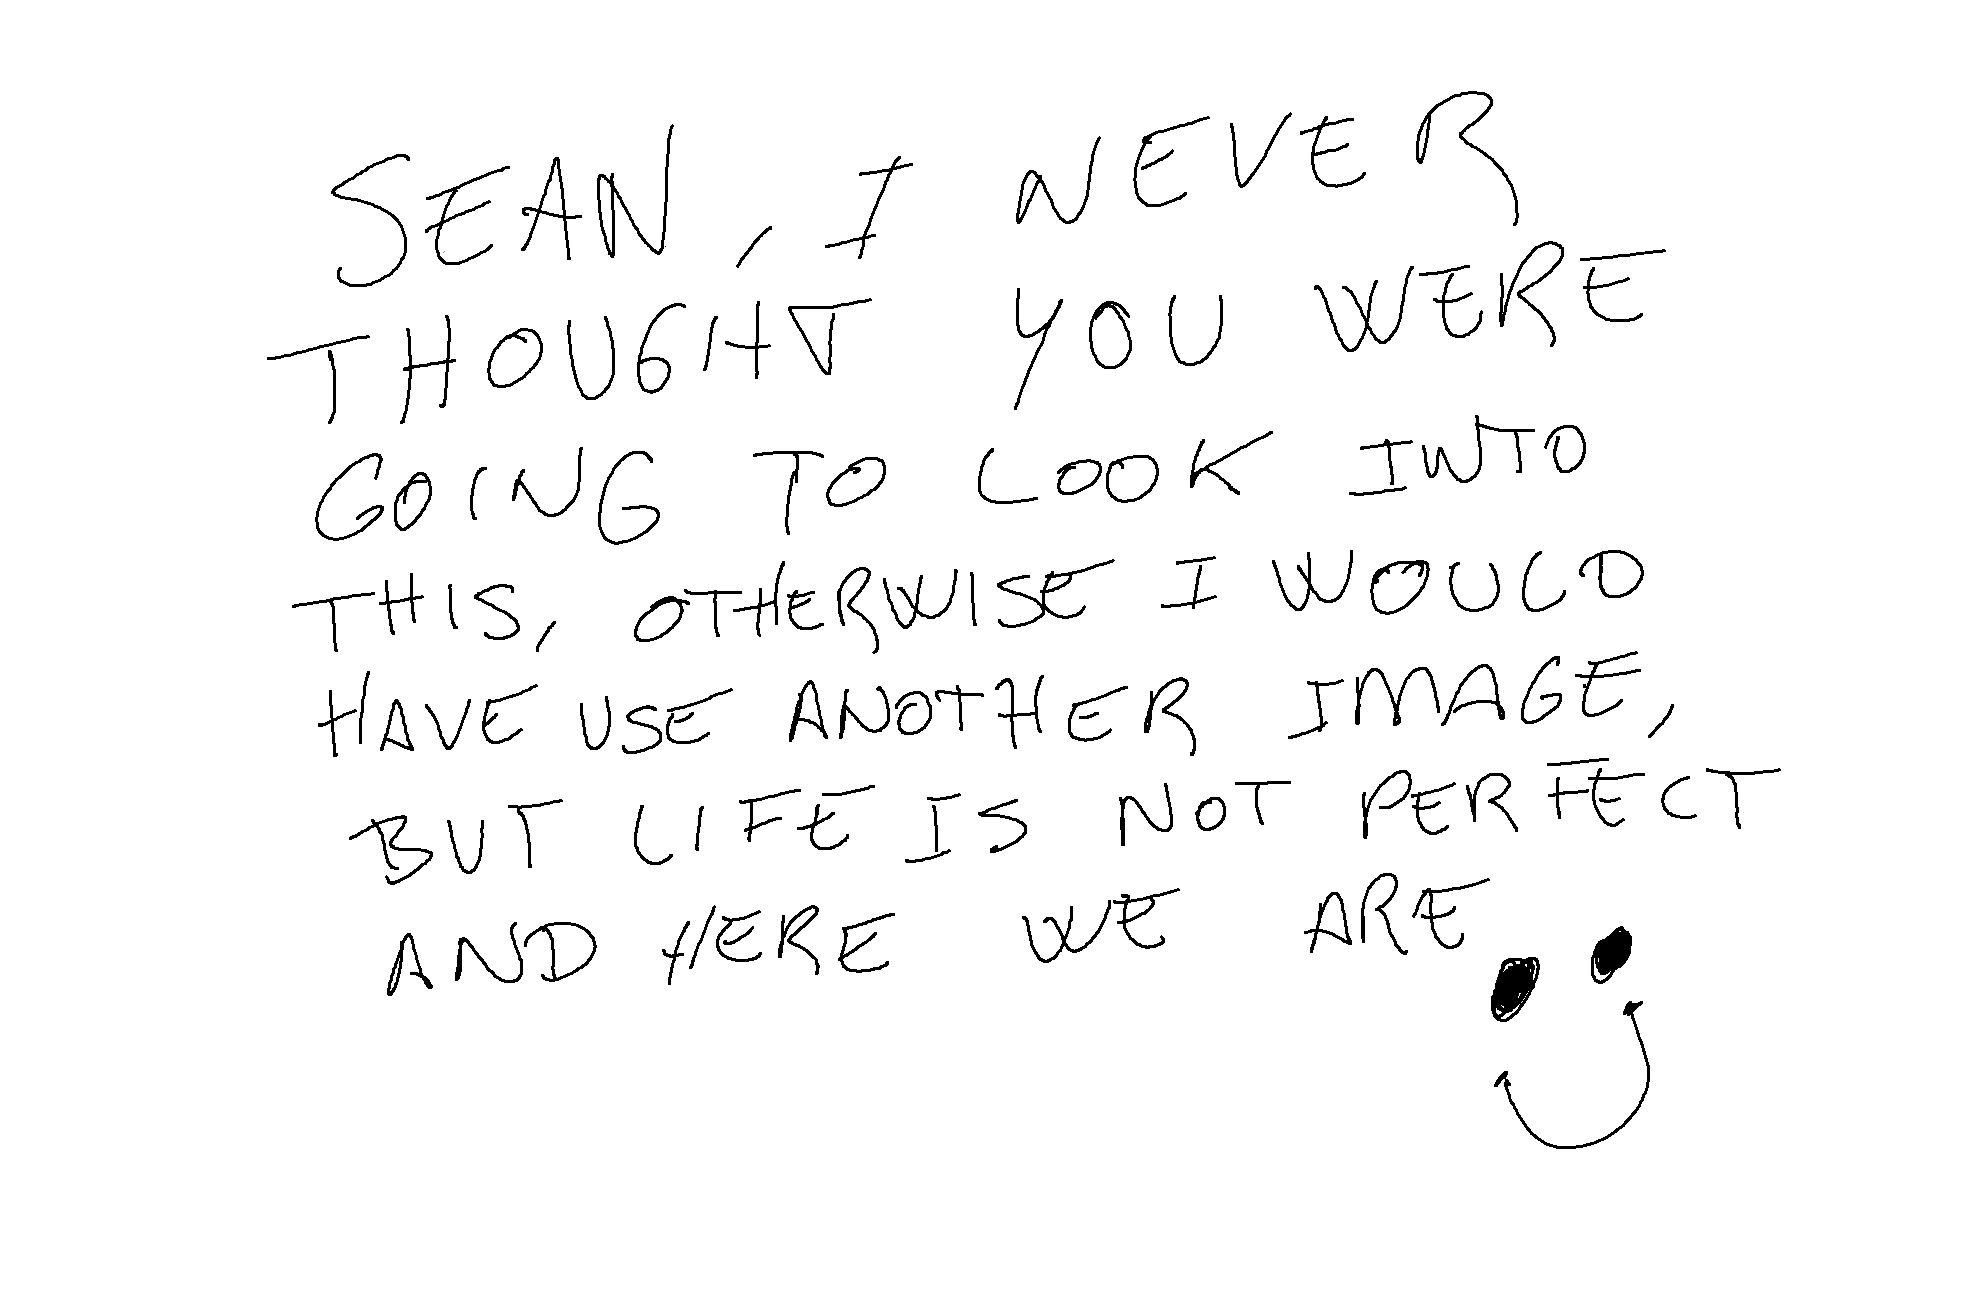 SEAN, I NEVER
THOUGHT YOU WERE
GOING TO LOOK INTO
THIS, OTHERWISE I WOULD
HAVE USE ANOTHER IMAGE,
BUT LIFE IS NOT PERFECT
AND HERE WE ARE